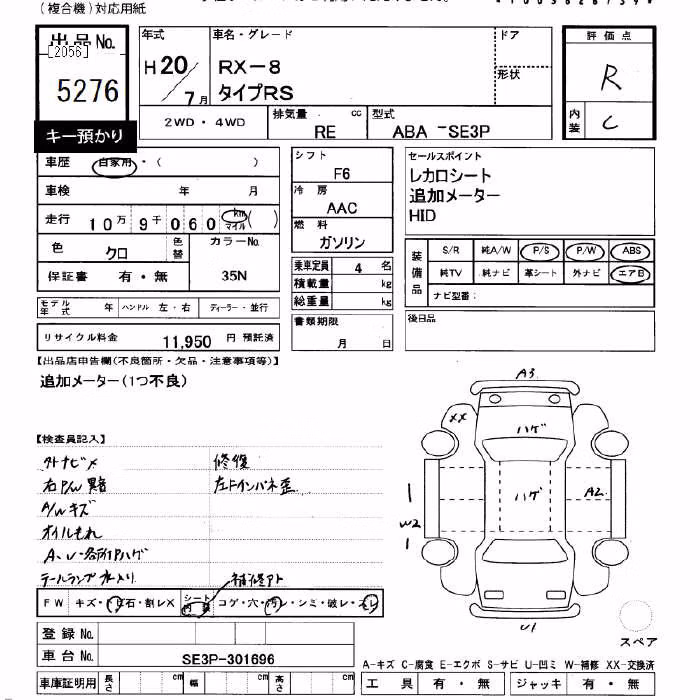 (複合機)対応用紙
出品No.
[2056]
5276
キー預かり
年式
H20/7月
車名・グレード
RX-8
タイプRS
ドア
形状
評価点
R
内装
C
2WD・4WD
排気量 cc
RE
型式
ABA -SE3P
車歴 自家用・( )
車検 年 月
走行 10万9千060 km マイル ( )
色 クロ
色替
カラーNo.
35N
保証書 有・無
シフト
F6
冷房
AAC
燃料
ガソリン
乗車定員 4 名
積載量 kg
総重量 kg
セールスポイント
レカロシート
追加メーター
HID
装備品
S/R 純A/W P/S P/W ABS
純TV 純ナビ 革シート 外ナビ エアB
ナビ型番:
モデル年式 年 ハンドル 左・右 ディーラー・並行
リサイクル料金 11,950 円 預託済
書類期限
月 日
後日品
【出品店申告欄(不良箇所・欠品・注意事項等)】
追加メーター(1つ不良)
【検査員記入】
外ナビメ
修復
右P/W異音
左ドインパネ歪
A/Wキズ
オイルもれ
A、U・各所Pハゲ
テールランプ水入り
補修アト
FW キズ・飛石・割レX シート内装 コゲ・穴・汚レ・シミ・破レ・スレ
A3
XX
ハゲ
ハゲ
A2
W2
U1
スペア
登録No.
車台No. SE3P-301696
車庫証明用 長さ cm 幅 cm 高さ cm
A-キズ C-腐食 E-エクボ S-サビ U-凹ミ W-補修 XX-交換済
工具 有・無 ジャッキ 有・無